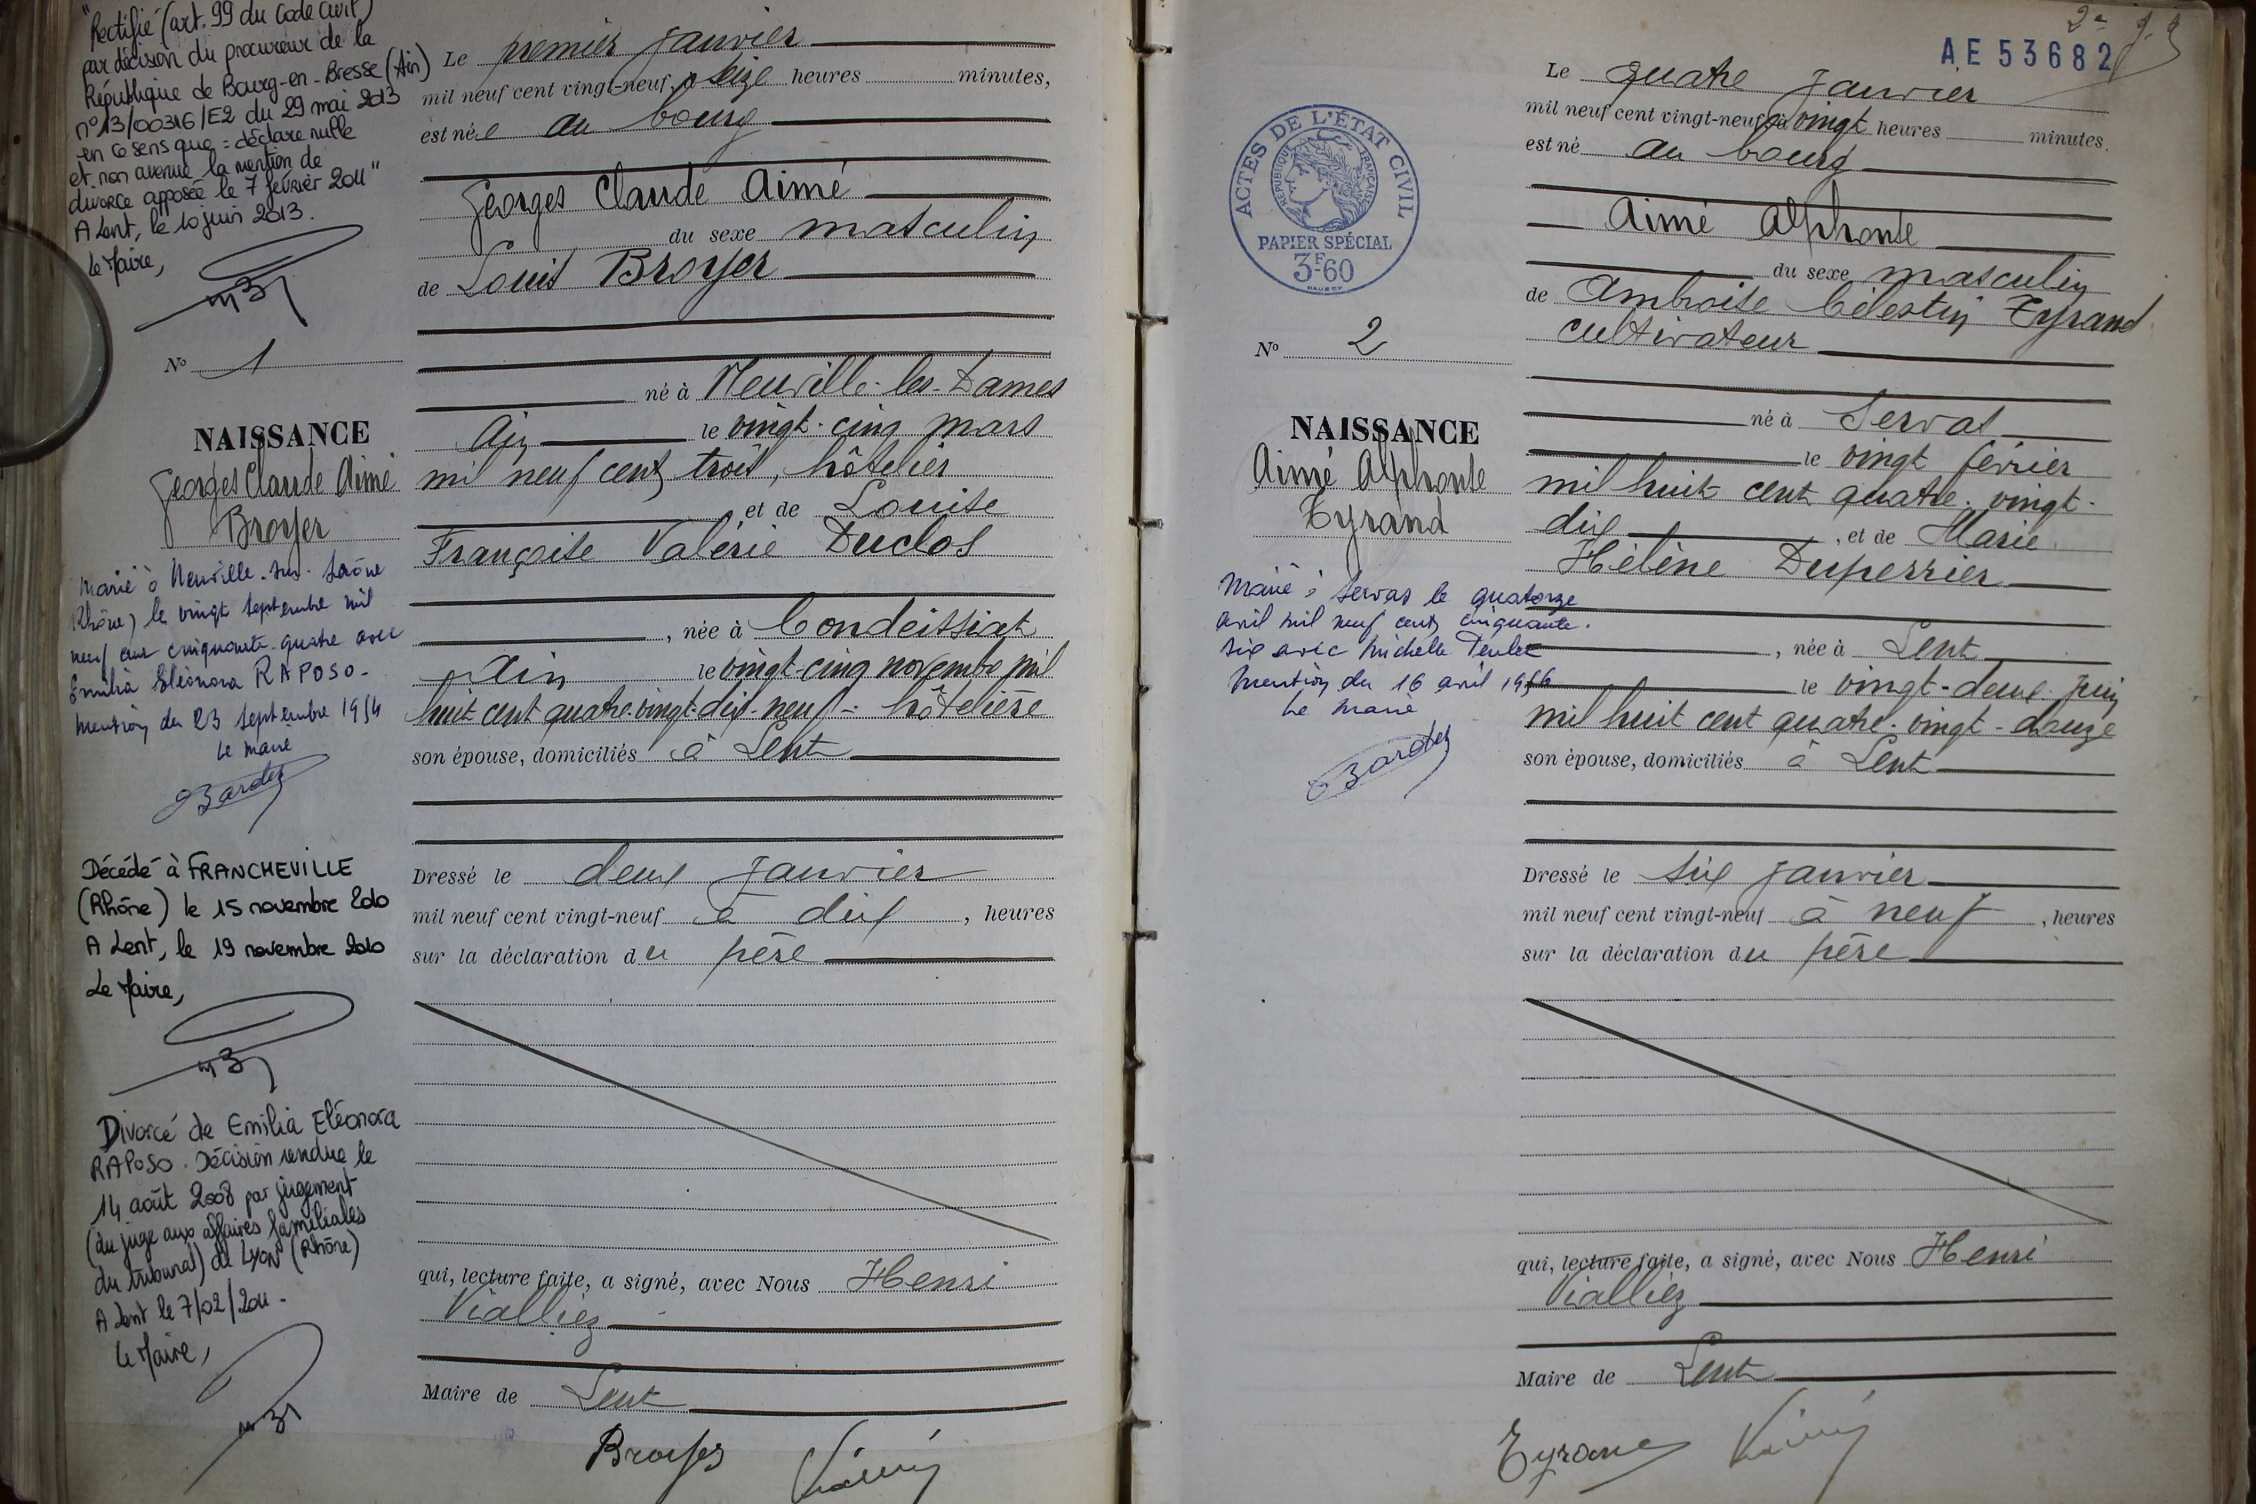 "Rectifié (art. 99 du Code Civil)
par décision du procureur de la
République de Bourg-en-Bresse (Ain)
n° 13/00316/E2 du 29 mai 2013
en ce sens que = déclare nulle
et non avenue la mention de
divorce apposée le 7 février 2011"
A Lent, le 10 juin 2013.
Le Maire,
N° 1
NAISSANCE
Georges Claude Aimé
Broyer
Marié à Neuville-sur-Saône
(Rhône) le vingt septembre mil
neuf cent cinquante-quatre avec
Emilia Eléonora RAPOSO-
Mention du 23 septembre 1954
Le Maire
Bardet
Décédé à FRANCHEVILLE
(Rhône) le 15 novembre 2010
A Lent, le 19 novembre 2010
Le Maire,
Divorcé de Emilia Eléonora
RAPOSO. Décision rendue le
14 août 2008 par jugement
(du juge aux affaires familiales
du tribunal) de LYON (Rhône)
A Lent le 7/02/2011-
Le Maire,
Le premier janvier
mil neuf cent vingt-neuf, à seize heures minutes,
est né au bourg
Georges Claude Aimé
du sexe masculin
de Louis Broyer
né à Neuville-les-Dames
Ain le vingt-cinq mars
mil neuf cent trois, hôtelier
, et de Louise
Françoise Valérie Duclos
, née à Condeissiat
Ain le vingt-cinq novembre mil
huit cent quatre-vingt-dix-neuf - hôtelière
son épouse, domiciliés à Lent
Dressé le deux janvier
mil neuf cent vingt-neuf à dix , heures
sur la déclaration du père
qui, lecture faite, a signé, avec Nous Henri
Vialliez
Maire de Lent
Broyer
2e
AE 53682
ACTES DE L'ÉTAT CIVIL
RÉPUBLIQUE FRANÇAISE
PAPIER SPÉCIAL
3F60
N° 2
NAISSANCE
Aimé Alphonse
Tyrand
Marié à Servas le quatorze
avril mil neuf cent cinquante-
six avec Michelle
Mention du 16 avril 1956
Le Maire
Bardet
Le quatre janvier
mil neuf cent vingt-neuf à vingt heures minutes.
est né au bourg
Aimé Alphonse
du sexe masculin
de Ambroise Célestin Tyrand
cultivateur
né à Servas
le vingt février
mil huit cent quatre-vingt-
dix , et de Marie
Hélène Duperrier
, née à Lent
le vingt-deux juin
mil huit cent quatre-vingt-douze
son épouse, domiciliés à Lent
Dressé le six janvier
mil neuf cent vingt-neuf à neuf , heures
sur la déclaration du père
qui, lecture faite, a signé, avec Nous Henri
Vialliez
Maire de Lent
Tyrand